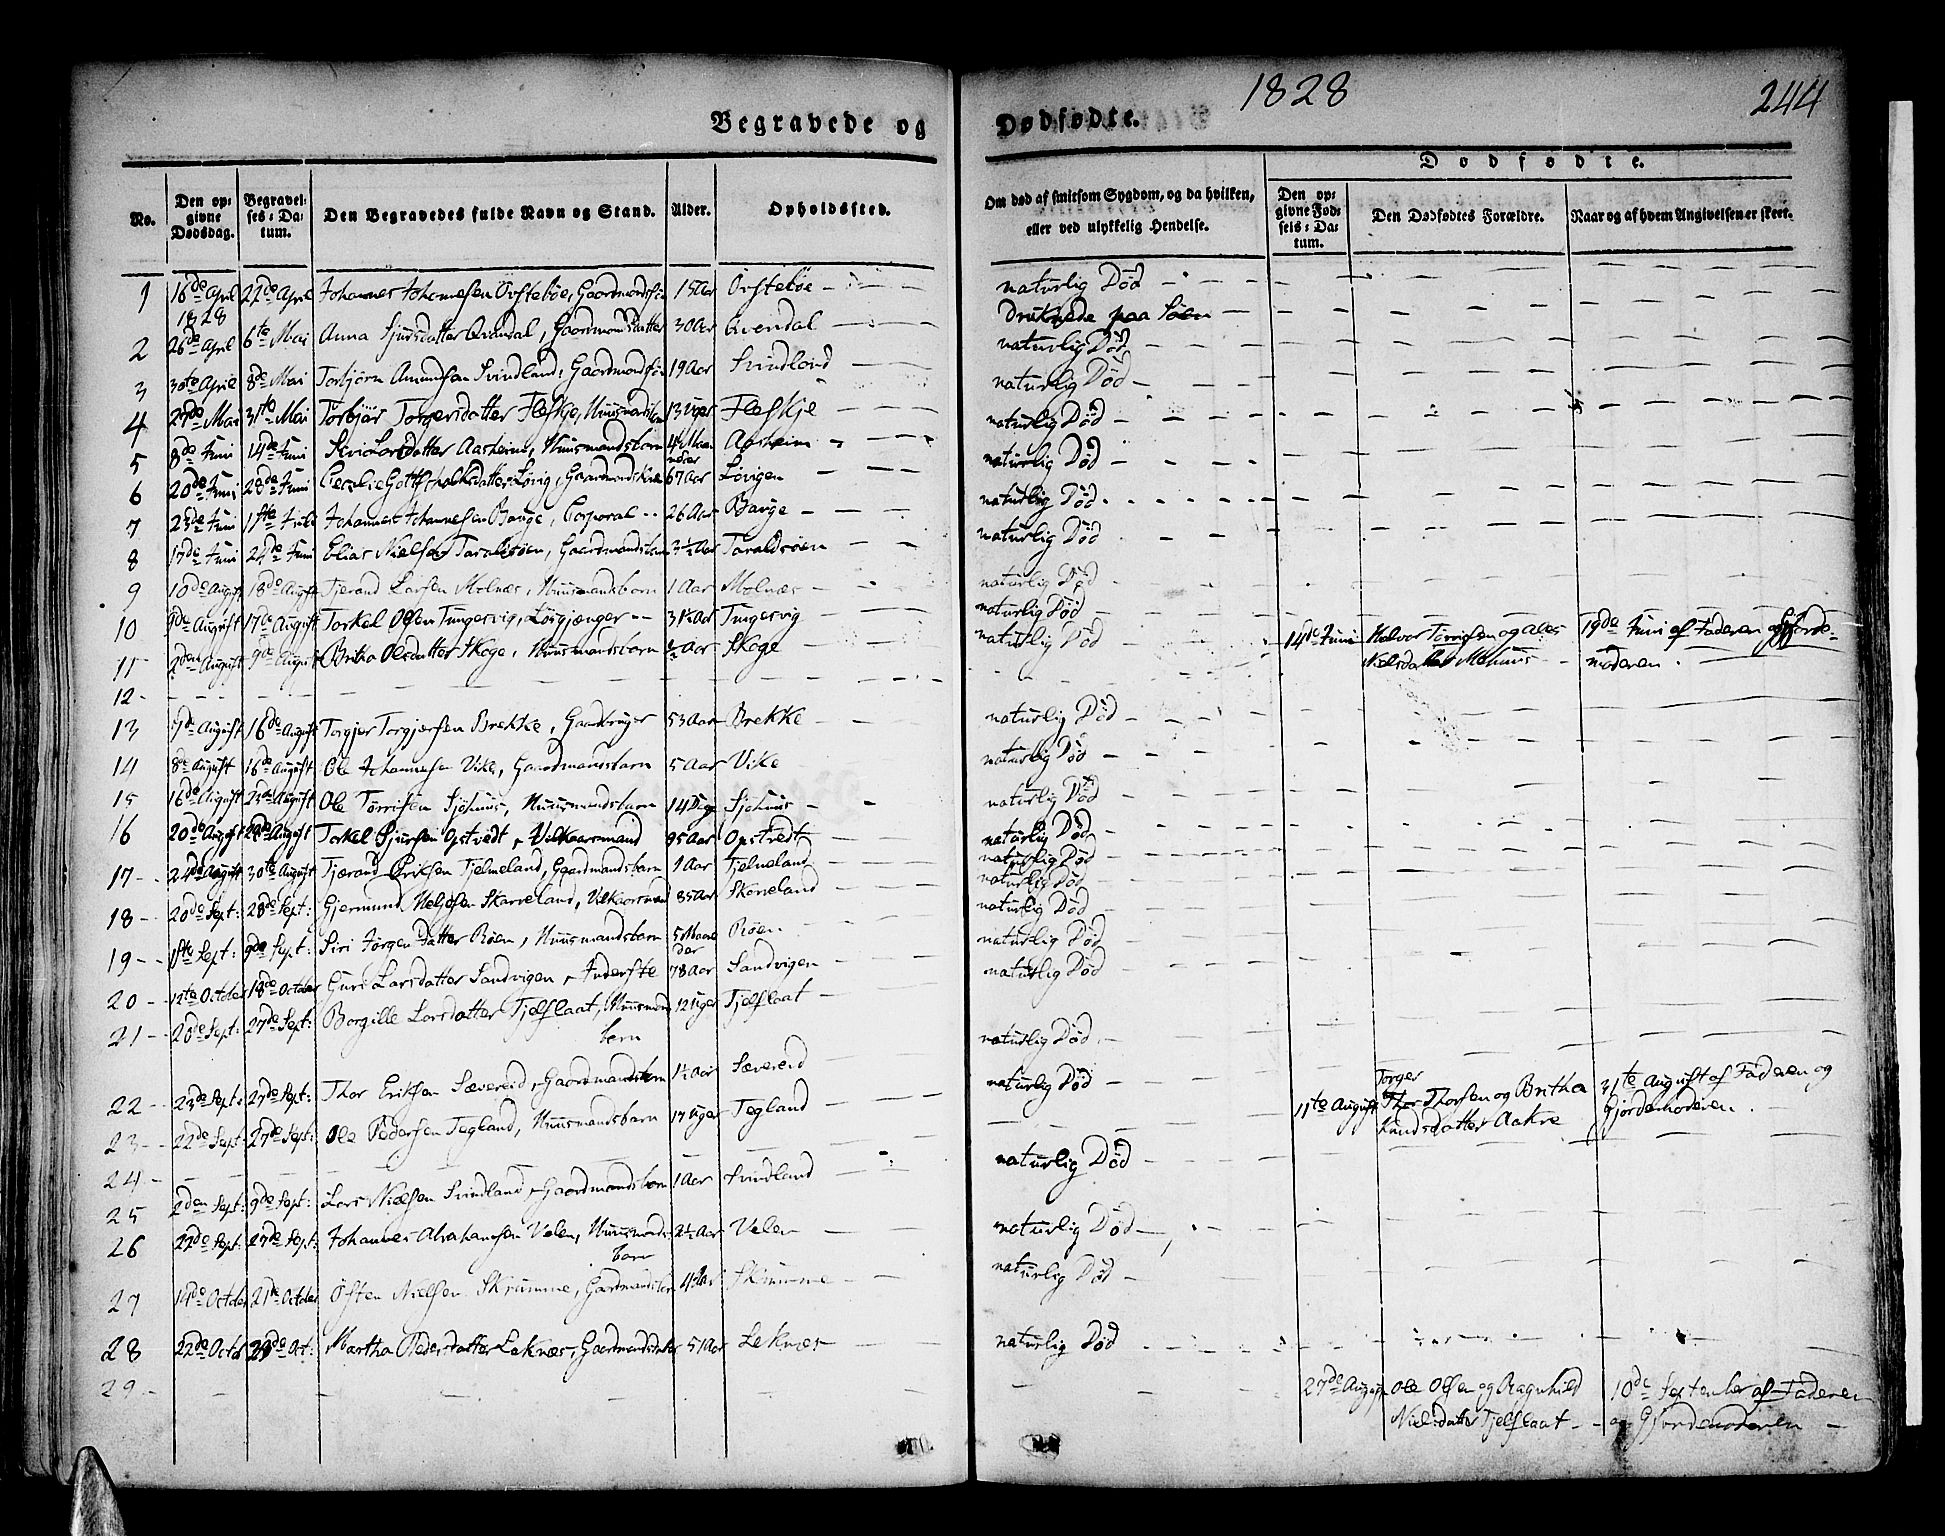 1828
244
Begravede og Dødfødte.
No.
Den opgivne Dødsdag.
Begravelses-Datum.
Den Begravedes fulde Navn og Stand.
Alder.
Opholdssted.
Om død af smitsom Sygdom, og da hvilken,
eller ved ulykkelig Hendelse.
Dødfødte.
Den opgivne Fødsels-Datum.
Den Dødfødtes Forældre.
Naar og af hvem Angivelsen er skeet.
1 16de April 1828 22de April Johannes Johannesen Ovstebøe, Gaardmandssøn 15 Aar Ovstebøe naturlig Død
2 26de April 6te Mai Anna Sjursdatter Qvendal, Gaardmandsdatter 30 Aar Qvendal druknede paa Søen
3 30te April 8de Mai Torbjörn Amundsen Svindland, Gaardmandssøn 19 Aar Svindland naturlig Død
4 27de Mai 31te Mai Torbjør Torgersdatter Fleskje, Huusmandsbarn 13 Uger Fleskje naturlig Død
5 8de Juni 14de Juni Larsdatter Aasheim, Huusmandsbarn 4 Maaneder Aasheim naturlig Død
6 20de Juni 28de Juni Cecelie Gottschalksdatter Løvig, 67 Aar Løvigen naturlig Død
7 23de Juni 1ste Juli Johannes Johannesen Bauge, Corporal 26 Aar Bauge naturlig Død
8 17de Juni 24de Juni Elias Nielsen Taraldsøen, Gaardmandsbarn 3½ Aar Taraldsøen naturlig Død
9 10de August 18de August Tjerand Larsen Molnæs, Huusmandsbarn 1 Aar Molnæs naturlig Død
10 9de August 17de August Torkel Olsen Tungesvig, Løsgjænger 31½ Aar Tungesvig naturlig Død
11 2den August 9de August Britha Olsdatter Skoge, Huusmandsbarn ½ Aar Skoge naturlig Død
12 14de Juni Halvor Tørrisen og Ales 19de Juni af Faderen og Gjorde-
Nielsdatter Mehuus moderen.
13 7de August 16de August Torgjer Torgjersen Brekke, Gaardbruger 53 Aar Brekke naturlig Død
14 8de August 16de August Ole Johannesen Vike, Gaardmandsbarn 5 Aar Vike naturlig Død
15 16de August 23de August Ole Tørrisen Sjöhuus, Huusmandsbarn 14 Dage Sjøhuus naturlig Død
16 20de August August Torkel Sjursen Opstvedt, Vilkaarsmand 95 Aar Opstvedt naturlig Død
17 24de August 30te August Tjærand Eriksen Tjelmeland, Gaardmandsbarn 1 Aar Tjelmeland naturlig Død
naturlig Død
18 20de Sept: 28de Sept: Gjermund Helgesen Skarveland, Vilkaarsmand 85 Aar Skarveland naturlig Død
19 1ste Sept: 9de Sept: Siri Jørgensdatter Røen, Huusmandsbarn 5 Maaneder Røen naturlig Død
20 12te October 18de October Guri Larsdatter Sandvigen, Inderste 78 Aar Sandvigen naturlig Død
21 20de Sept: 27de Sept: Borgille Larsdatter Tjelflaat, Huusmandsbarn 12 Uger Tjelflaat naturlig Død
22 23de Sept: 27de Sept: Thor Eriksen Sævereid, Gaardmandsbarn 1½ Aar Sævereid naturlig Død
23 22de Sept: 27de Sept: Ole Pedersen Tegland, Huusmandsbarn 17 Uger Tegland
24 11te August Torger Thor Thorsen og Britha 31te August af Faderen og
Knudsdatter Aakre Gjordemoderen.
25 2den Sept: 9de Sept: Lars Nielsen Svindland, Gaardmandsbarn 1 Aar Svindland naturlig Død
26 22de Sept: 27de Sept: Johannes Abrahamsen Velen, Huusmandsbarn 2½ Aar Velen naturlig Død
27 14de October 21de October Østen Nielsen Skrumme, Gaardmandsbarn 4 Aar Skrumme naturlig Død
28 22de October 29de Oct: Martha Pedersdatter Leknæs, Gaardmandsdatter 51 Aar Leknæs naturlig Død
29 27de August Ole Olsen og Ragnhild 10de September af Faderen
Nielsdatter Tjelflaat og Gjordemoderen